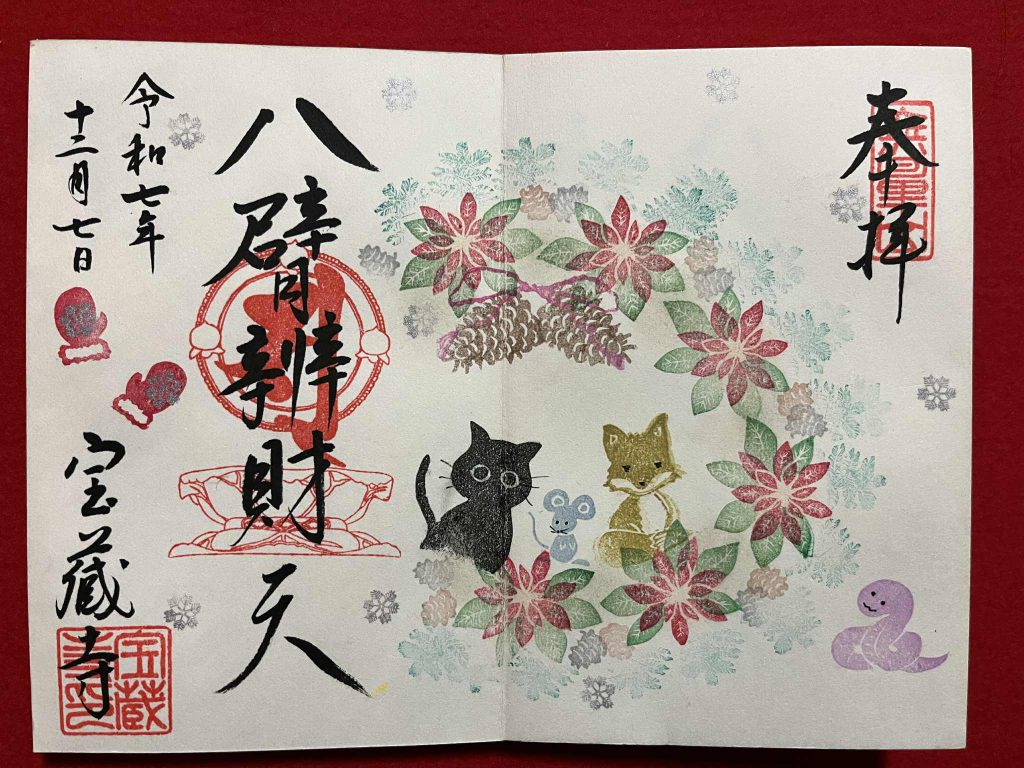 奉拝
八臂辨財天
令和七年
十二月七日
宝蔵寺